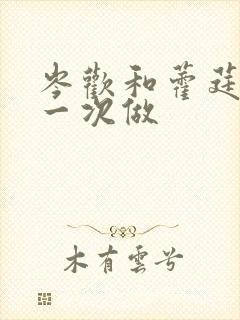 岑歡和藿莛
一次做
木有雲兮